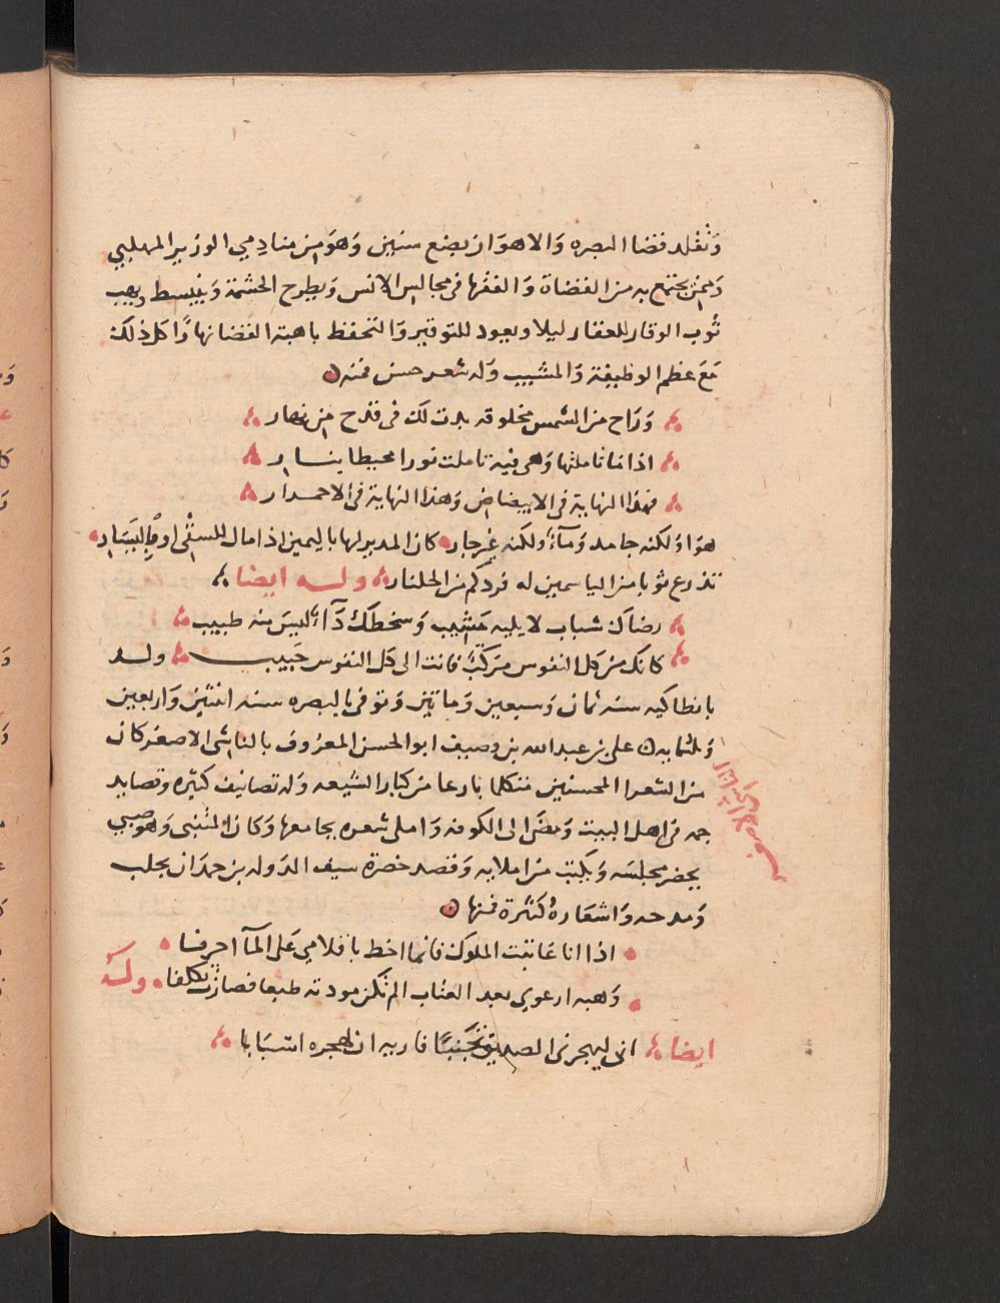 وتقلد قضا البصره والاهواز بضع سنين وهو من منادمي الوزير المهلبي
وممن يجتمع به من القضاة والفقها في مجالس الانس ويطرح الحشمة وينبسط ويهب
ثوب الوقار للعقار ليلا ويعود للتوقير والتحفظ باهبة القضا نهارا كل ذلك
مع عظم الوظيفة والمشيب وله شعر حسن فمنه
وراح من الشمس مخلوقه بدت لك في قدح من نهار
اذا ما تاملتها وهي فيه تاملت نورا محيطا بنار
فهذا النهاية في الابيضاض وهذا النهاية في الاحمرار
هواؤ لكنه جامد وماءٌ ولكنه غير جار كان المدير لها باليمين اذا مال للسقى او باليسار
تدرع ثوبا من الياسمين له فرد كم من الجلنار وله ايضا
رضاك شباب لا يليه مشيب وسخطك دآء ليس منه طبيب
كانك من كل النفوس مركبٌ فانت الى كل النفوس حبيب ولد
بانطاكيه سنه ثمان وسبعين وماتين وتوفى بالبصره سنه اثنتين واربعين
وثلثمايه علي بن عبدالله بن وصيف ابوالحسن المعروف بالناشى الاصغر كان
من الشعرا المحسنين متكلما بارعا من كبار الشيعه وله تصانيف كثيره وقصايد
جمه في اهل البيت ومضى الى الكوفه واملى شعره بجامعها وكان المتنبى وهو صبي
يحضر مجلسه ويكتب من املايه وقصد حضرة سيف الدوله بن حمدان بحلب
ومدحه واشعاره كثيرة فمنها
اذا انا عاتبت الملوك فانما اخط باقلامي على المآ احرفا
وهبه ارعوى بعد العتاب الم تكن مودته طبعا فصارت تكلفا وله
ايضا اني ليهجرني الصديق تجنبًا فاريه ان لهجره اسبابا